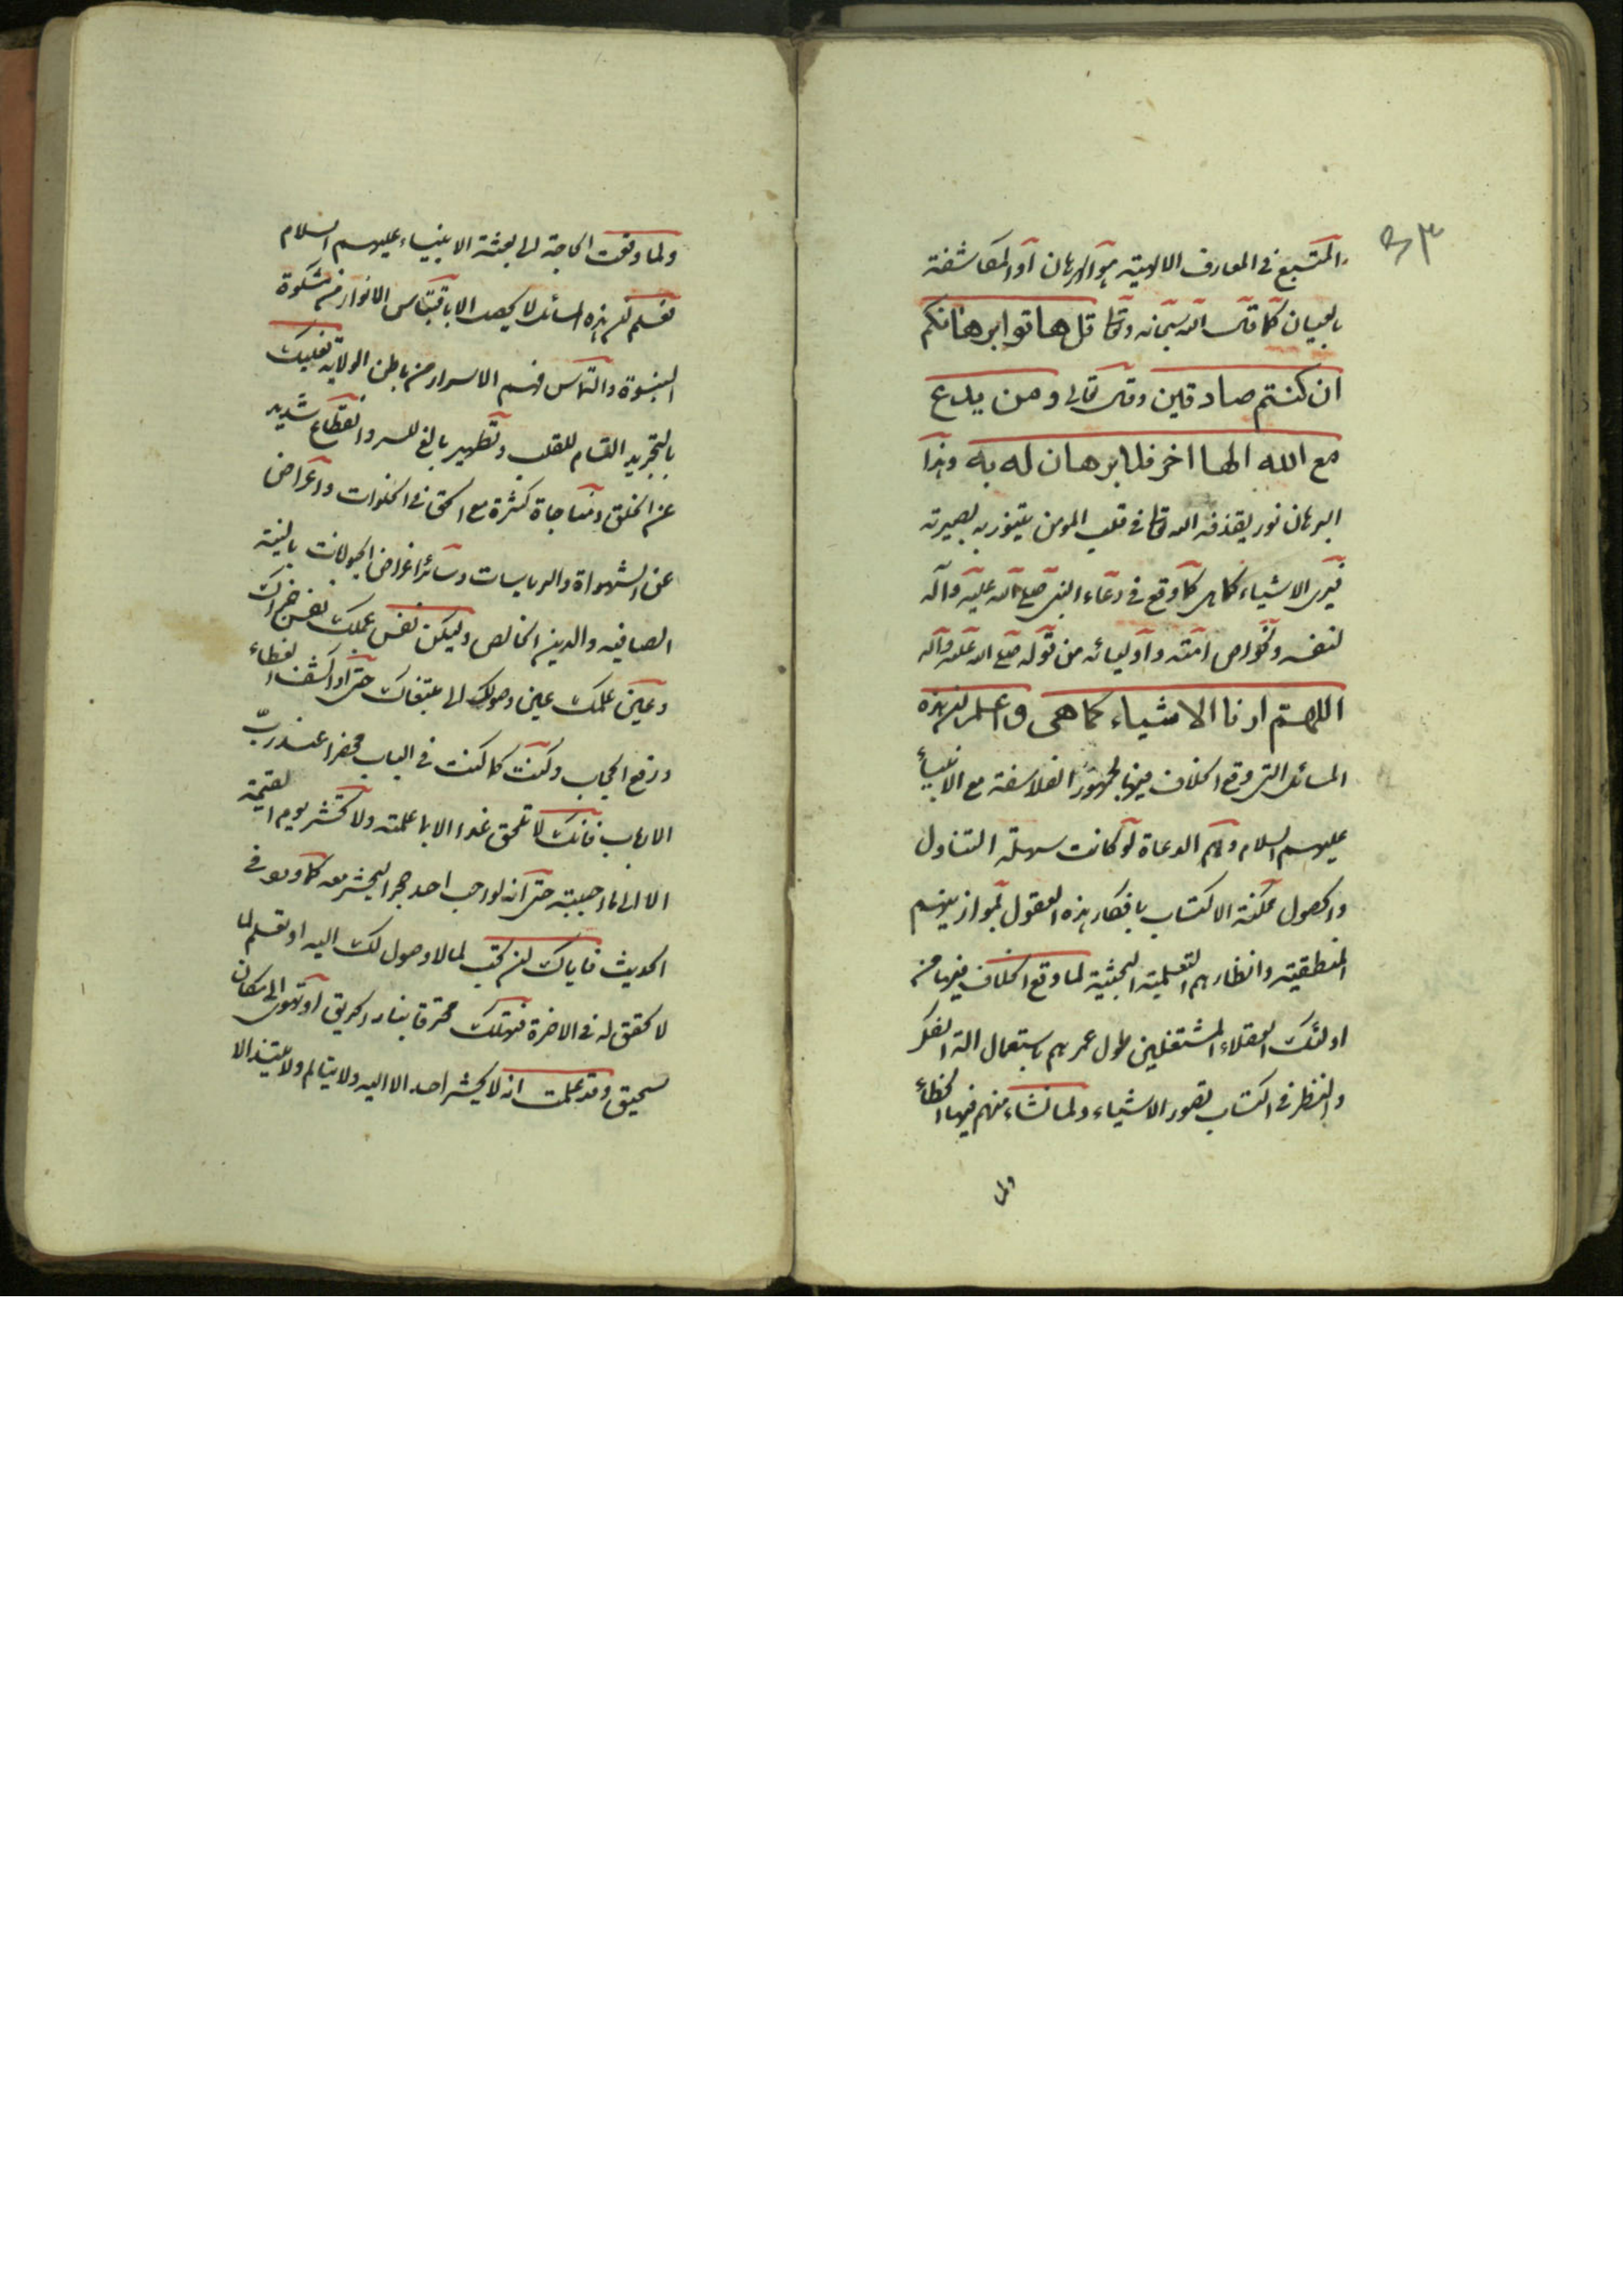 ٣
المتبع في المعارف الالهية هو البرهان او المكاشفة
بالعيان كما قال الله سبحانه وتعا قل هاتوا برهانكم
ان كنتم صادقين وقال تعالى ومن يدع
مع الله الها اخر فلا برهان له به وهذا
البرهان نور يقذفه الله تعا في قلب المومن يتنور به بصيرته
فيرى الاشياء كما هي كما وقع في دعاء النبي صلى الله عليه وآله
لنفسه ولخواص امته واوليائه من قوله صلى الله عليه وآله
اللهم ارنا الاشياء كما هي واعلم ان هذه
المسائل التي وقع الخلاف فيها لجمهور الفلاسفة مع الانبياء
عليهم السلام وهم الدعاة لو كانت سهلة التناول
والحصول ممكنة الاكتساب بافكار هذه العقول بموازينهم
المنطقية وانظارهم التعليمية البحثية لما وقع الخلاف فيها من
اولئك العقلاء المشتغلين طول عمرهم باستعمال الة الفكر
والنظر في اكتساب تصور الاشياء ولما نشاء منهم فيها الخطاء
ولما
ولما وقعت الحاجة الى بعثة الانبياء عليهم السلام
فعلم ان هذه المسائل لا يحصل الا باقتباس الانوار من مشكوة
النبوة والتماس فهم الاسرار من باطن الولاية فعليك
بالتجريد التام للقلب وتطهير بالغ للسر وانقطاع شديد
عن الخلق ومناجاة كثرة مع الحق في الخلوات واعراض
عن الشهواة والرياسات وسائر اغراض الحيوانات بالنية
الصافيه والدين الخالص وليكن نفس عملك نفس جزاك
وعين علمك عين وصولك الى مبتغاك حتى اذا كشف الغطاء
ورفع الحجاب وكنت كما كنت في الباب محضرا عند رب
الارباب فانك لا تلحق غدا الا بما علمته ولا تحشر يوم القيمة
الا الى ما احببته حتى انه لو احب احد حجرا ليحشر معه كما ورد في
الحديث فاياك ان تحب لما لا وصول لك اليه او تعلم لما
لا تحقق له في الاخرة فتهلك محترقا بنار الحريق او تهوى الى مكان
سحيق وقد علمت انه لا يحشر احد الا اليه ولا يتالم ولا يلتذ الا